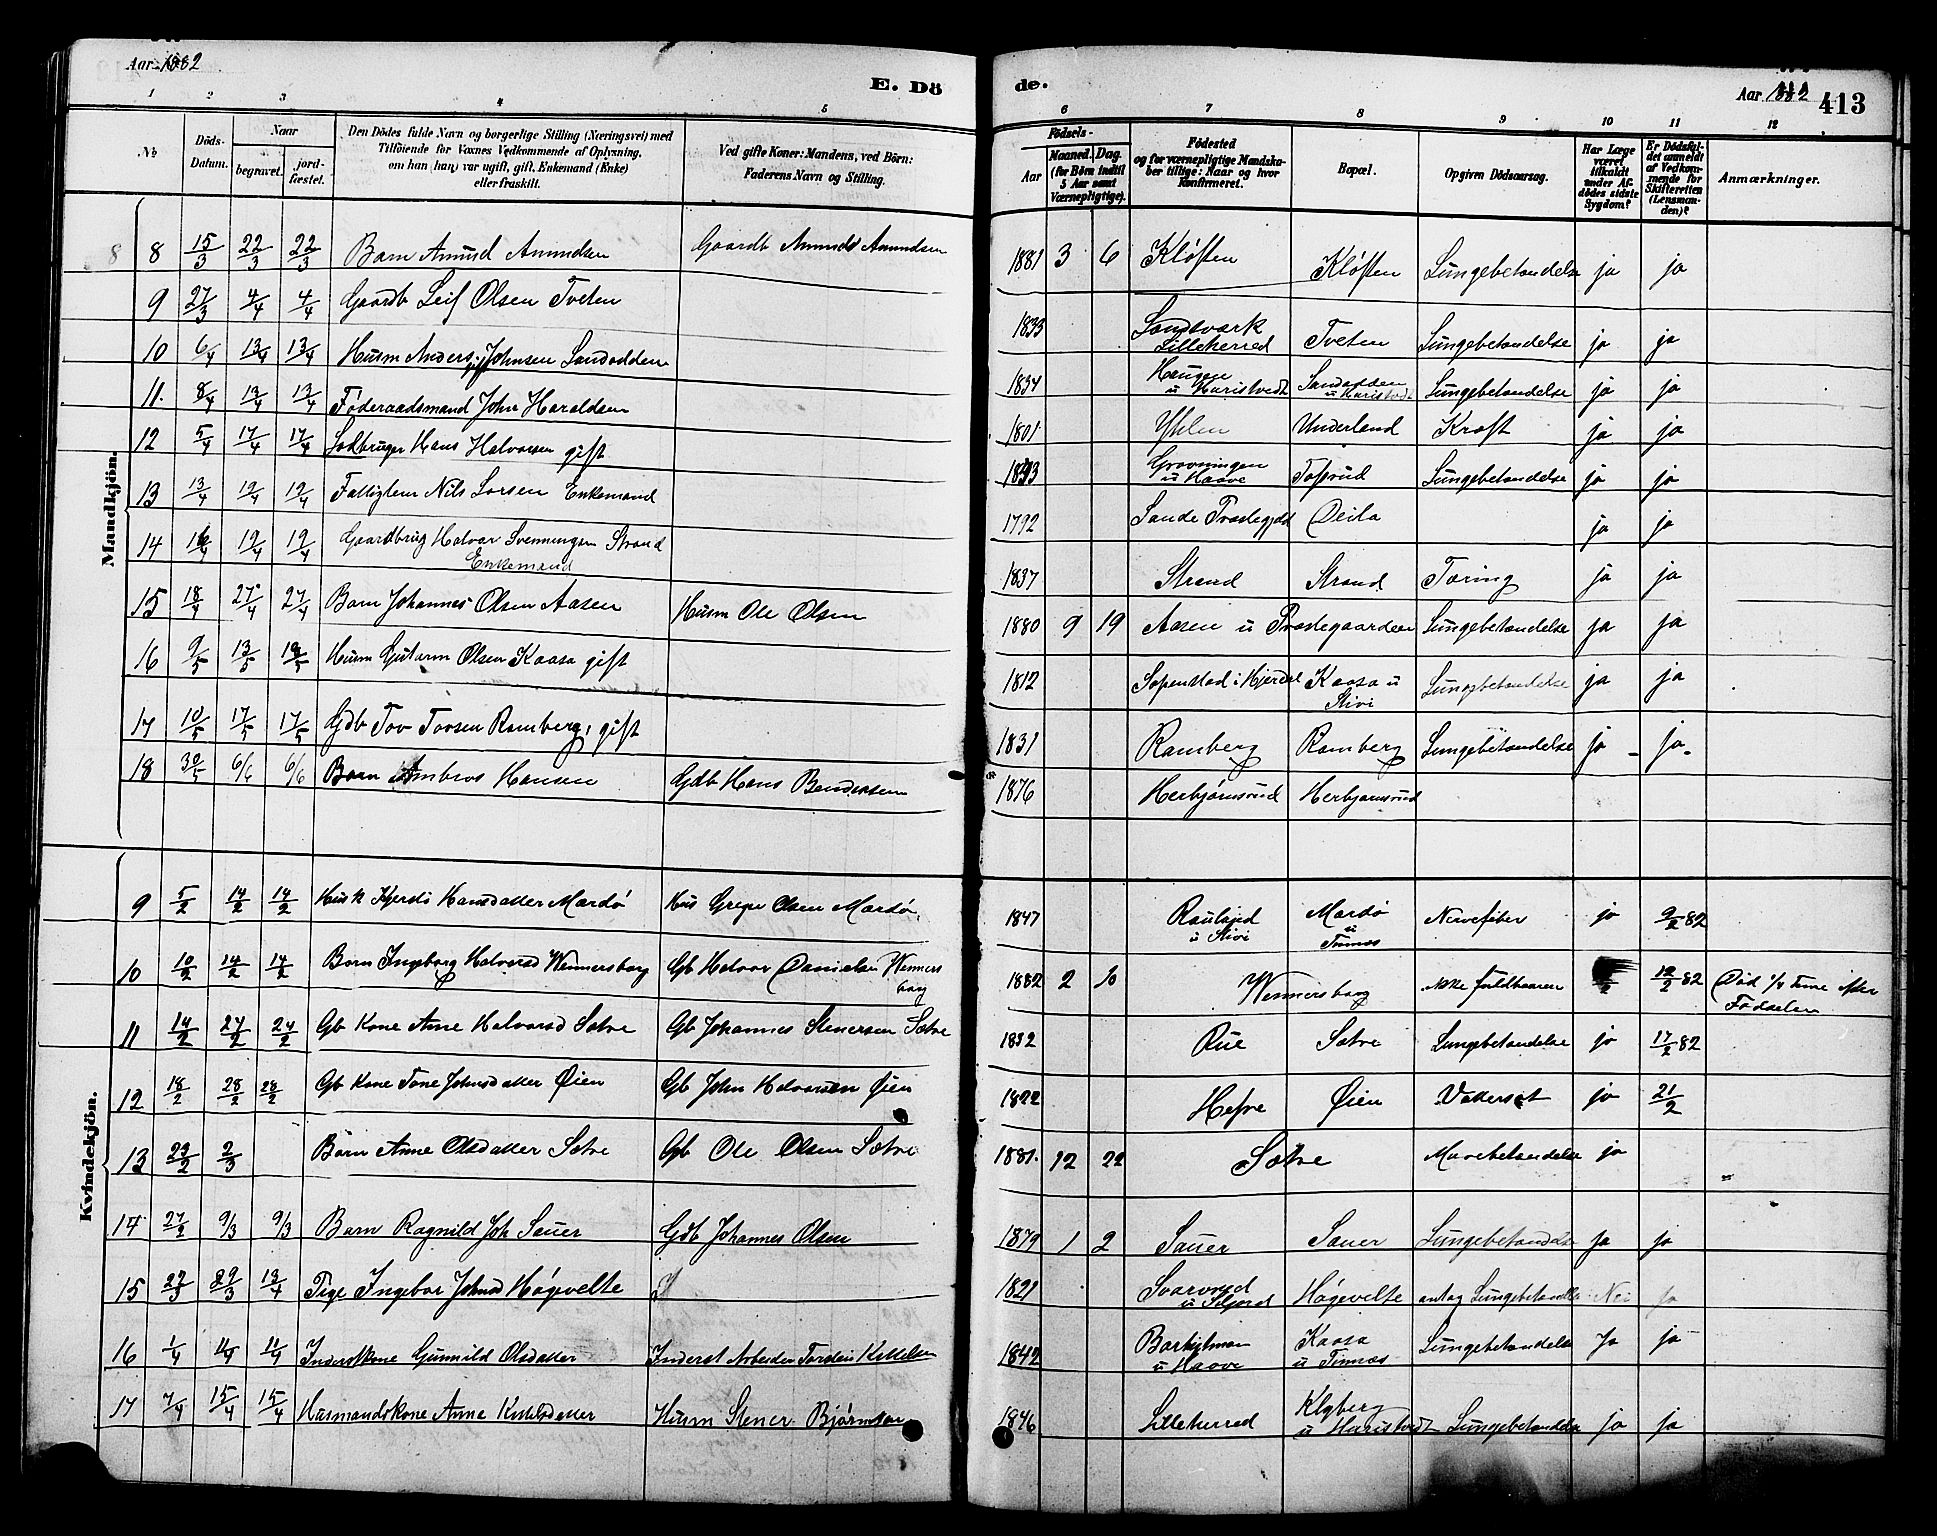 Aar 1882
E. Dö
de.
Aar 1882 413
1 2 3 4 5 6 7 8 9 10 11 12
No
Döds-
Datum.
Naar
begravet.
jord-
fæstet.
Den Dödes fulde Navn og borgerlige Stilling (Næringsvei) med
Tilföiende for Voxnes Vedkommende af Oplysning.
om han (hun) var ugift, gift, Enkemand (Enke)
eller fraskilt.
Ved gifte Koner: Mandens, ved Börn:
Faderens Navn og Stilling.
Födsels-
Aar
Maaned. Dag.
(for Börn indtil
5 Aar samt
Værnepligtige).
Födested
og for værnepligtige Mandska-
ber tillige: Naar og hvor
konfirmeret.
Bopæl.
Opgiven Dödsaarsag.
Har Læge
været
tilkaldt
under Af-
dödes sidste
Sygdom?
Er Dödsfal-
det anmeldt
af Vedkom-
mende for
Skifteretten
(Lensman-
den)?
Anmærkninger.
Mandkjön.
8 8 15/3 22/3 22/3 Barn Amund Amundsen Gaardb Amund Amundsen 1881 3 6 Kløften Kløften Lungebetændelse ja ja
9 27/3 4/4 4/4 Gaardb Leif Olsen Tveten 1833 Sandsværk
Lilleherred Tveten Lungebetændelse ja ja
10 6/4 13/4 13/4 Husm Anders Johnsen Sandodden 1834 Haugen
u Haristvedt Sandodden
u Haristvedt Lungebetændelse ja ja
11. 8/4 13/4 13/4 Føderaadsmand John Haraldsen 1801 Underland Kræft ja ja
12 5/4 17/4 17/4 Hans Halvorsen gift Grovningen
u Haave Lungebetændelse ja ja
13 13/4 19/4 19/4 Fattiglem Nils Larsen Enkemand 1792 Sande Præstegjeld ja ja
14 19/4 19/4 Gaardbrug Halvor Svenningsen Strand
Enkemand 1837 Strand Strand Tæring ja ja
15 18/4 27/4 27/4 Barn Johannes Olsen Aasen Husm Ole Olsen 1880 9 19 Aasen u Præstegaarden Lungebetændelse ja ja
16 9/5 13/5 Husm Gutorm Olsen Kaasa gift 1812 i Hjerdal Kaasa u
Stivi Lungebetændelse ja ja
17 10/5 17/5 17/5 Gdb Tov Tovsen Ramberg, gift 1831 Ramberg Ramberg Lungebetændelse ja - ja -
18 30/5 6/6 6/6 Barn Ambros Hansen Gdb Hans Bendiksen 1876 Herbjørnsrud Herbjørnsrud
Kvindekjön.
9 5/2 14/2 14/2 Husk Kjersti Hansdatter Mardø Hus Greger Olsen Mardø 1847 Rauland
u Stivi Mardø
u
Tinnæs Nervefeber ja 9/2 82
10 10/2 14/2 14/2 Barn Ingeborg Halvorsd Wennersborg Gb Halvor Danielsen Wenners
borg 1882 2 10 Wennersborg ikke fuldbaaren 12/2 82 Død 1/4 Time efter
Fødselen
11 14/2 24/2 24/2 Gb Kone Anne Halvorsd Sætre Gb Johannes Stenersen Sætre 1832 Rue Sætre Lungebetændelse ja 17/2 82
12 18/2 28/2 28/2 Gb Kone Tone Johnsdatter Øien Gb John Halvorsen Øien 1822 Øien Vattersot ja 21/2
13 2/3 Barn Anne Olsdatter Sætre Gb Ole Olsen Sætre 1881. 12 22 Sætre Mavebetændelse ja "
14 27/2 9/3 9/3 Barn Ragnild Joh Sauer Gdb Johannes Olsen 1879 1 2 Sauer Sauer Lungebetændelse Ja ja
15 29/3 13/4 Pige Ingebor Johnsd Høgevelte 1821 Svarverud Høgevelte antag Lungebetændelse Nei ja
16 1/4 11/4 11/4 Inderstkone Gunnild Olsdatter Inderst Arbeider Torstein Kittelsen 1842 u Haave Kaasa
u Tinnæs Lungebetændelse Ja ja
17 7/4 15/4 15/4 Husmandskone Anne Kittelsdatter Husm Stener Bjørnson 1846 Lilleherred Klyberg
u Haristvedt Lungebetændelse ja ja